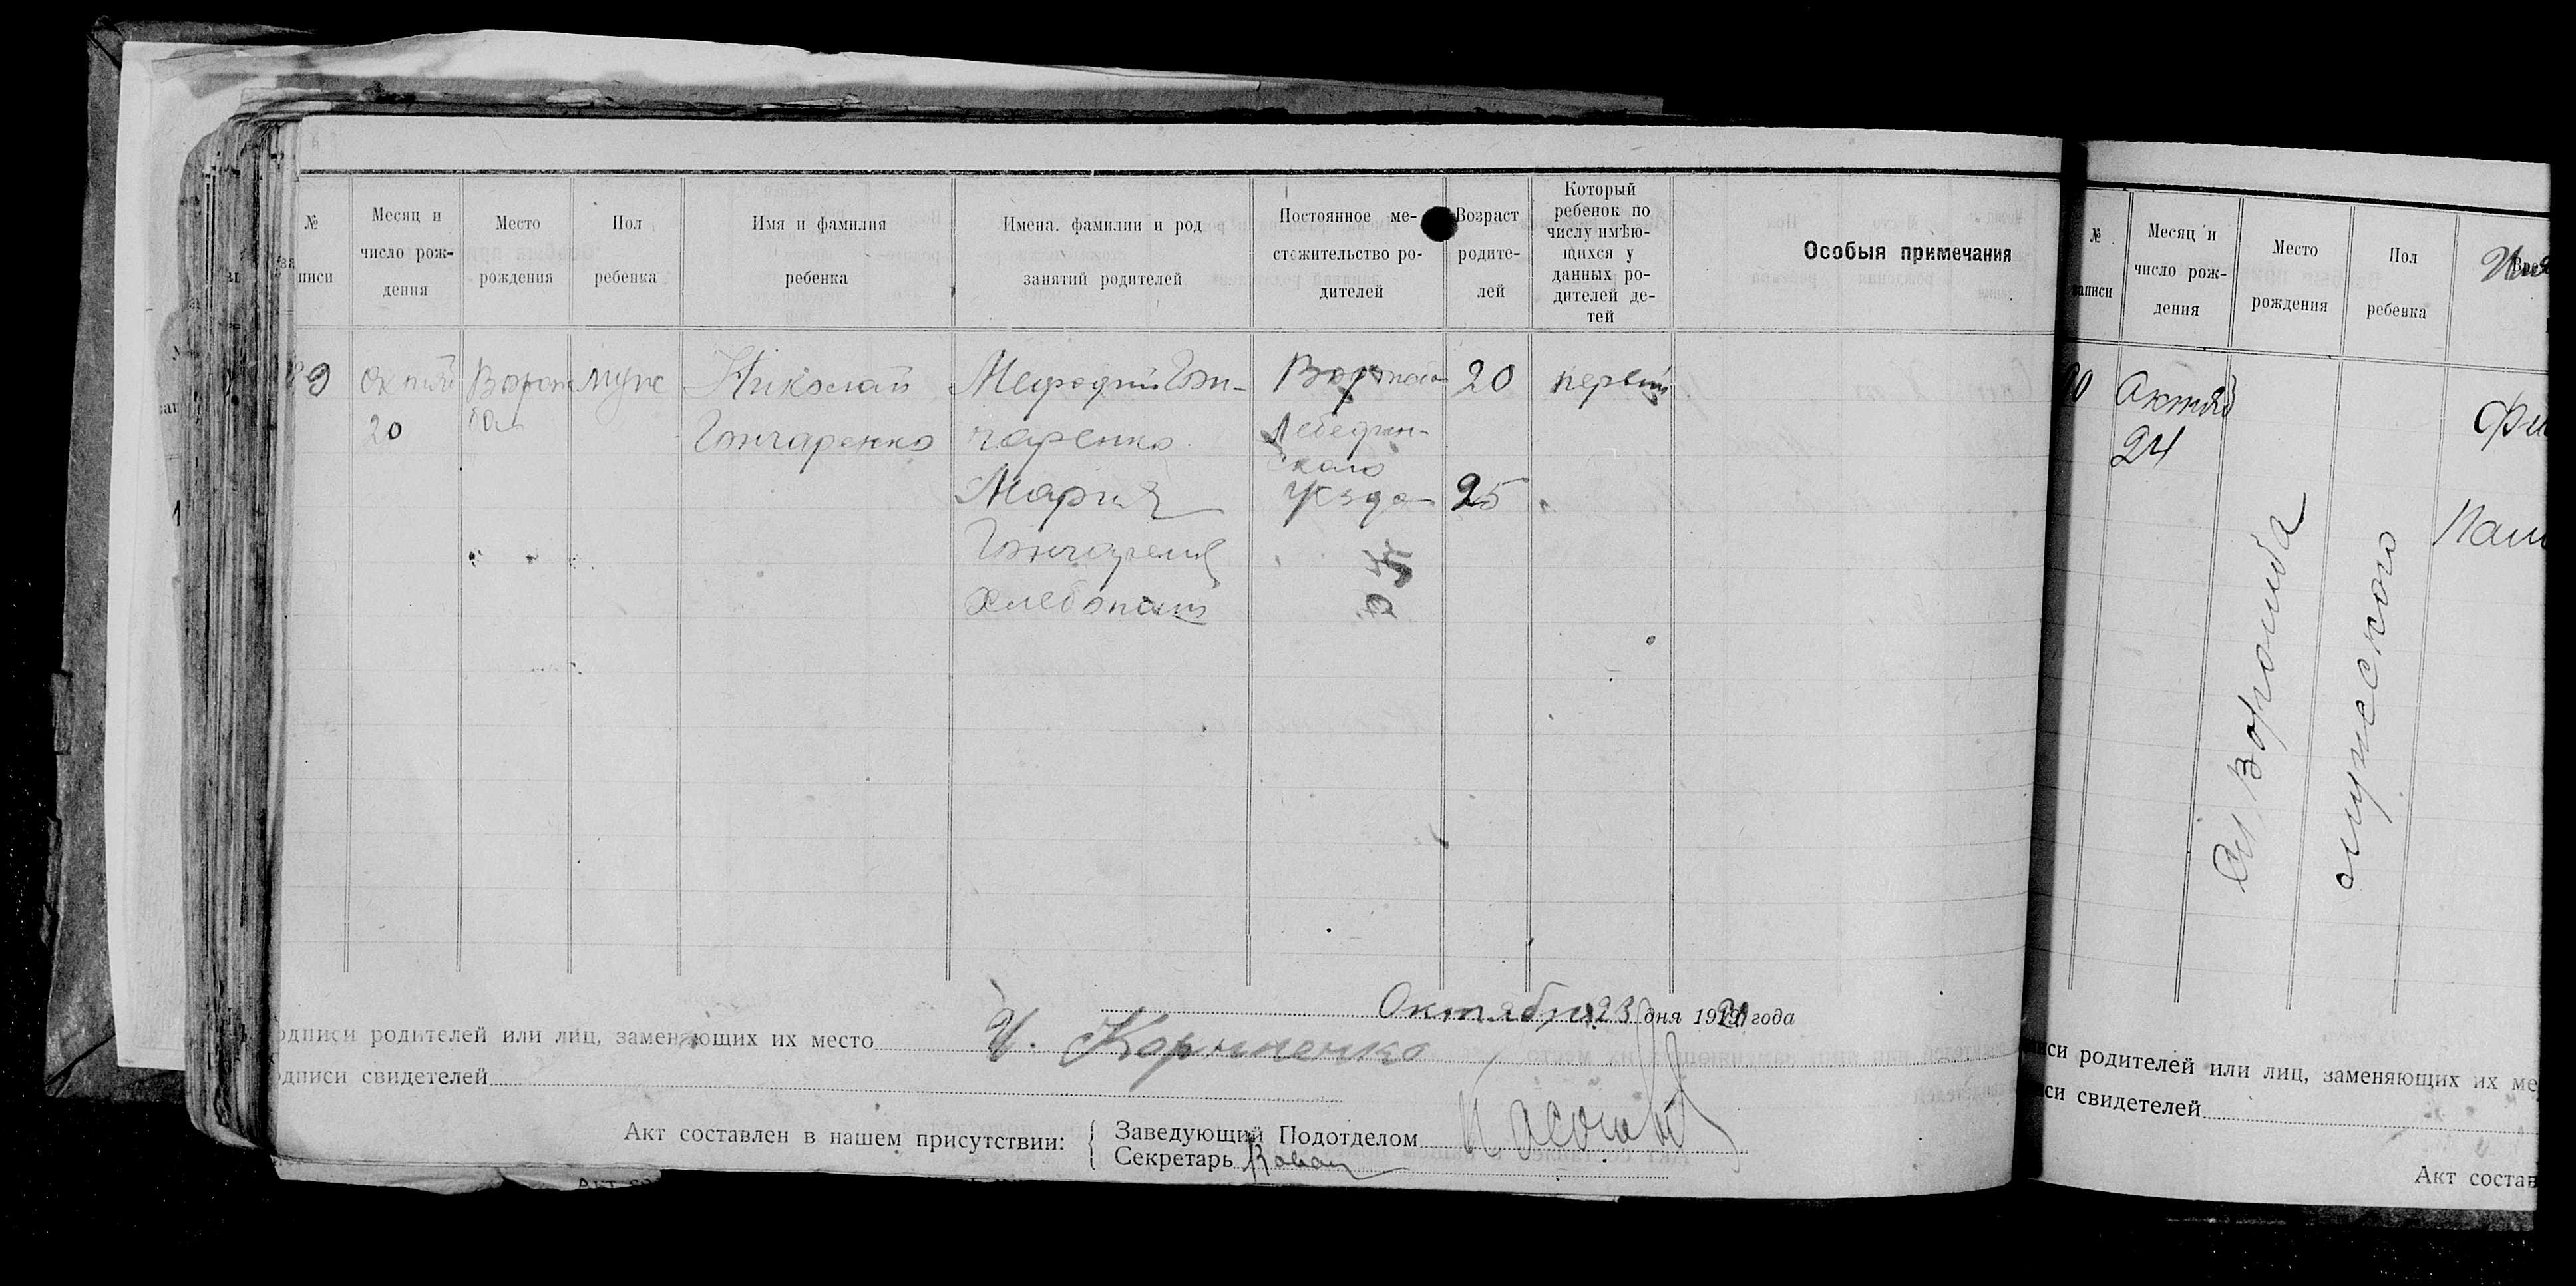 №
писи
Месяц и
число рож-
дения
Место
рождения
Пол
ребенка
Имя и фамилия
ребенка
Имена. фамилии и род
занятий родителей
Постоянное ме-
стожительство ро-
дителей
Возраст
родите-
лей
Который
ребенок по
числу имѣю-
щихся у
данных ро-
дителей де-
тей
Особыя примечания
9
Октяб
20
Ворож
ба
муж
Николай
Гончаренко
Мефодий Гон-
чаренко
Мария
Гончаренк
Хлебопаш
Ворожба
Лебедин-
ского
Уезда
20
25
первый
Октября 23 дня 19 года
одписи родителей или лиц, заменяющих их место
одписи свидетелей
Акт составлен в нашем присутствии:
Заведующий Подотделом
Секретарь
№
аписи
Месяц и
число рож-
дения
Место
рождения
Пол
ребенка
Октяб
24
Сл. Ворожба
мужеского
Фи
иси родителей или лиц, заменяющих их ме
си свидетелей
Акт состав